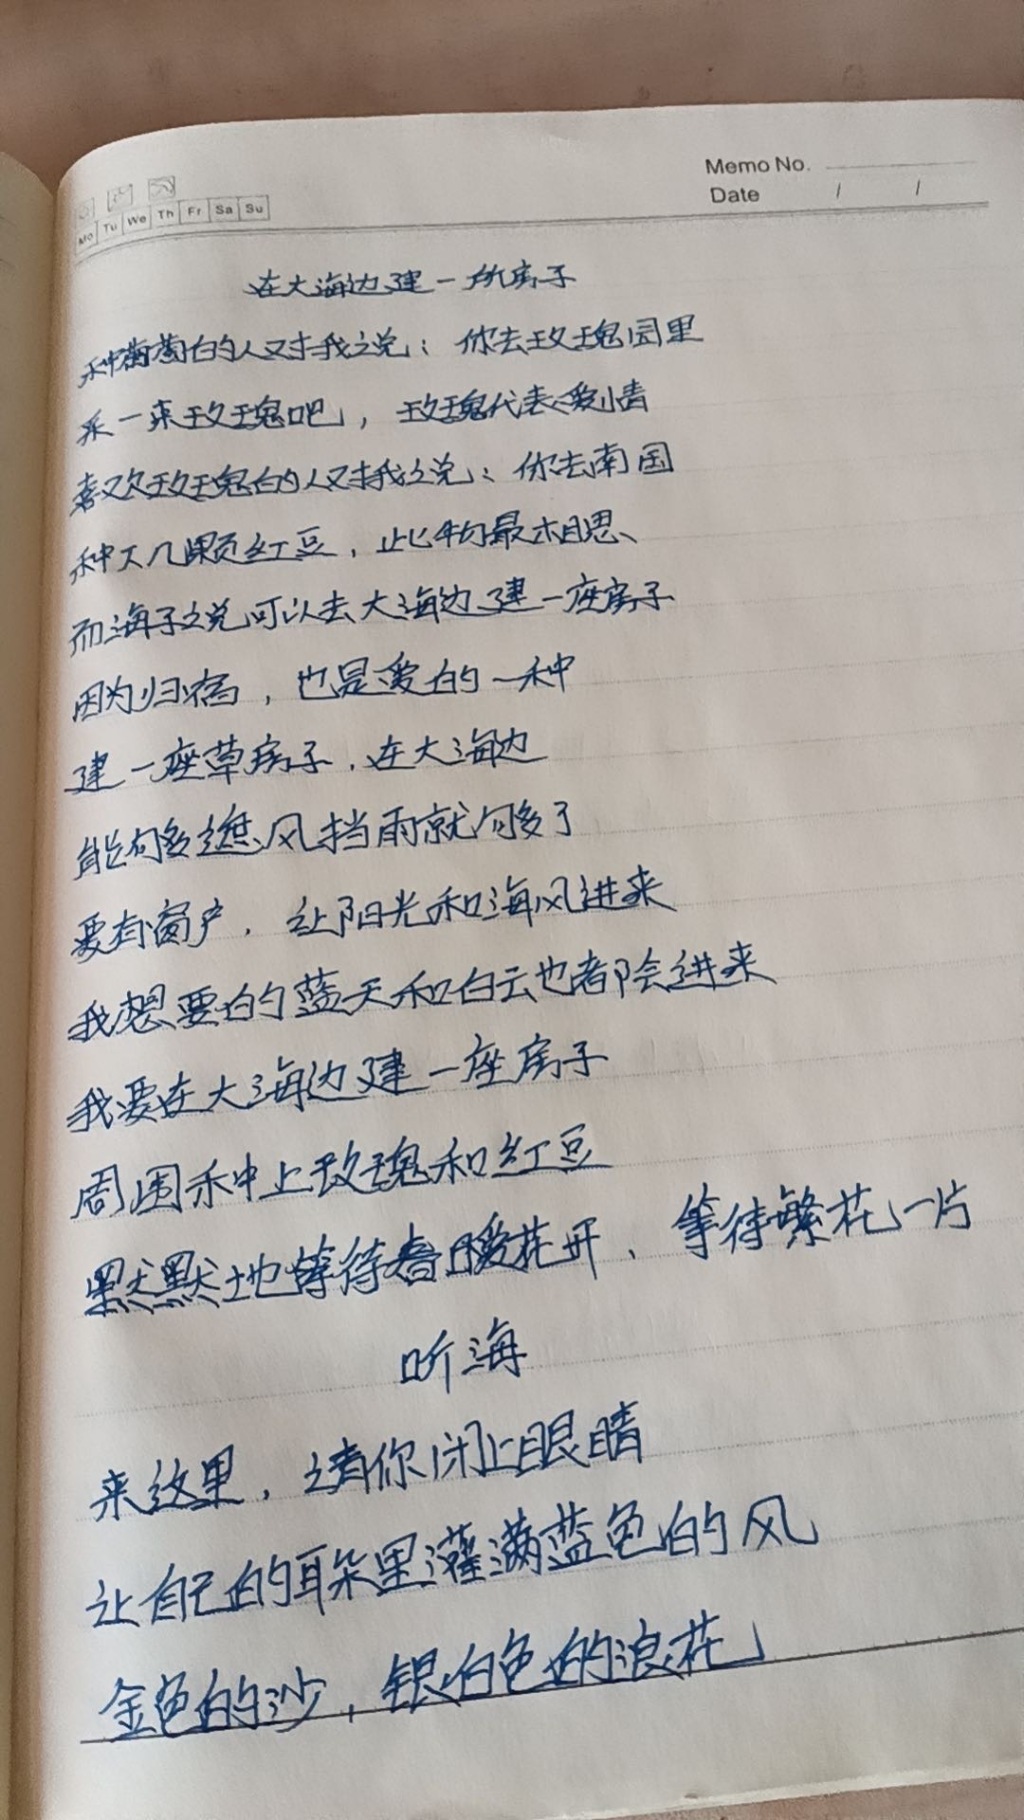 Memo No.
Date / /
Mo Tu We Th Fr Sa Su
在大海边建一所房子
种葡萄的人对我说：你去玫瑰园里
采一朵玫瑰吧，玫瑰代表爱情
喜欢玫瑰的人对我说：你去南国
种下几颗红豆，此物最相思、
而海子说可以去大海边建一座房子
因为归宿，也是爱的一种
建一座草房子，在大海边
能够遮风挡雨就够了
要有窗户，让阳光和海风进来
我想要的蓝天和白云也都会进来
我要在大海边建一座房子
周围种上玫瑰和红豆
默默地等待春暖花开、等待繁花一片
听海
来这里，请你闭上眼睛
让自己的耳朵里灌满蓝色的风
金色的沙，银白色的浪花